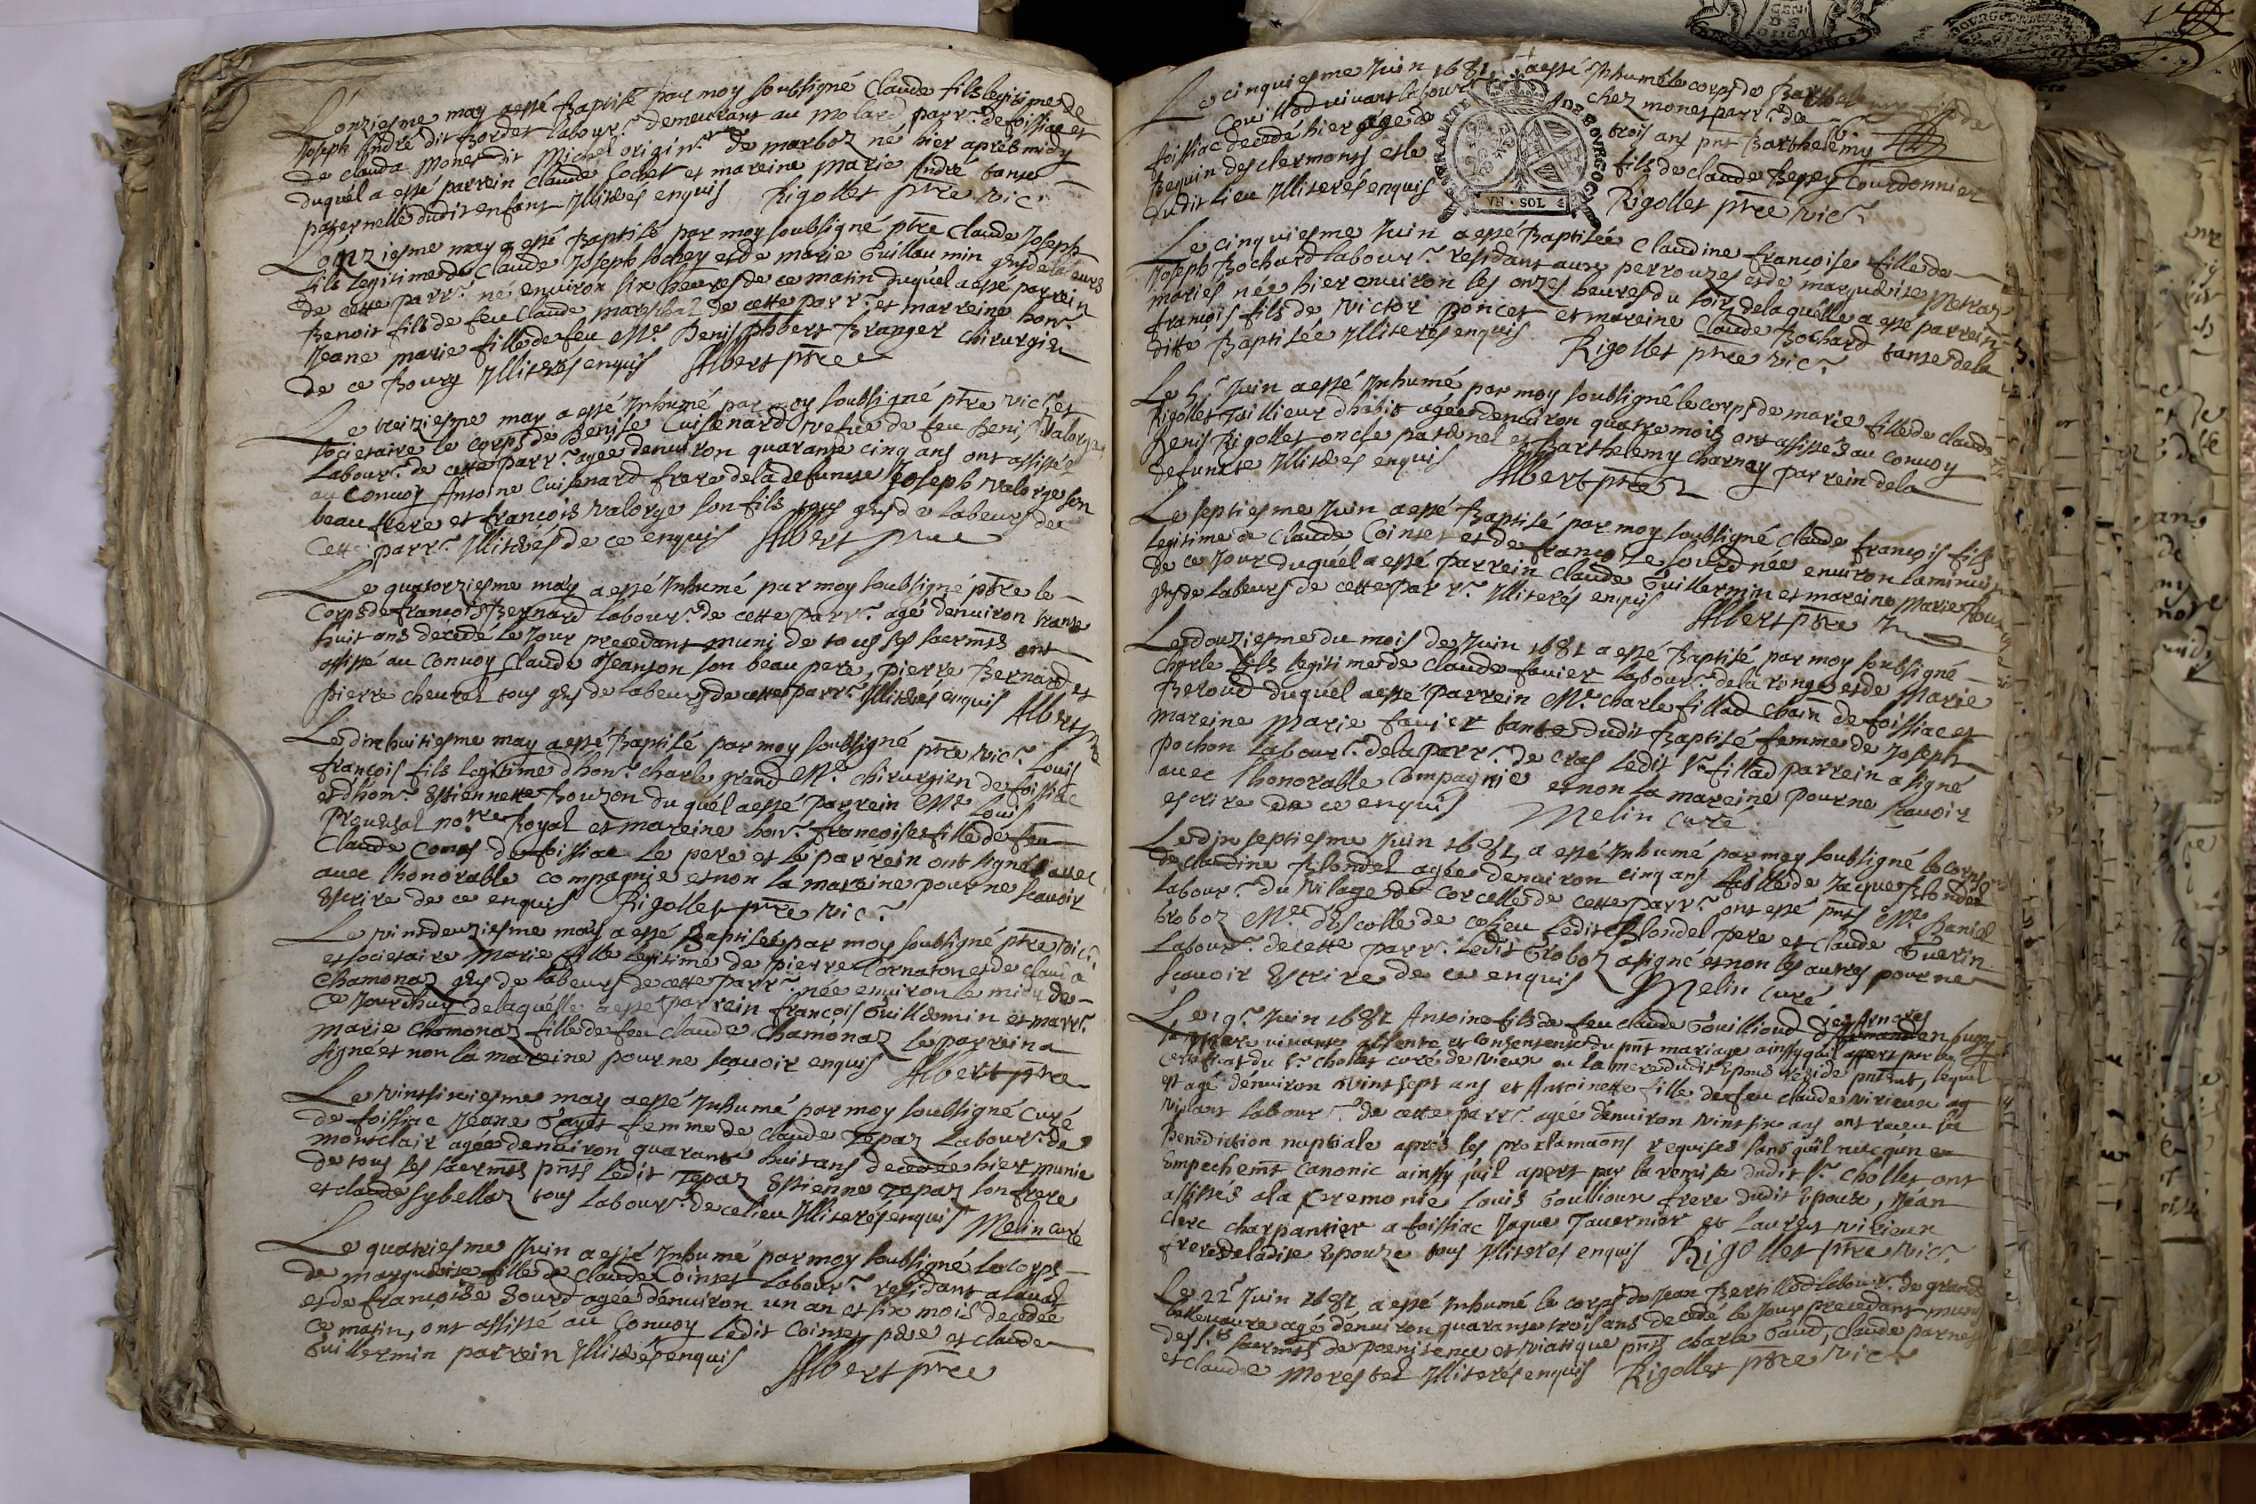 L'onziesme may a esté Baptisé par moy soubsigné Claude fils legitime de
Joseph André dit Bordet labour.r demeurant au molard parr.e de foissiac et
de clauda Monet dit Michel origin.re de marboz né hier apres midy
duquel a esté parrein Claude Sochet et mareine Marie André tante
paternelle dudit enfant Illiterés enquis Rigollet ptre vic.
L'onziesme may a esté Baptisé par moy soubsigné ptre Claude Joseph
fils legitime de Claude Joseph Sochey et de marie Guillaumin gens de labeurs
de cette parr.e né environ six heures de ce matin duquel a esté parrein
Benoit fils de feu Claude mareschal de cette parr.e et marreine hon.e
Jeane marie fille de feu M.e Denis phbert Branger chirurgien
de ce Bourg Illiterés enquis Albert ptre
Le treiziesme may a esté Inhumé par moy soubsigné ptre vic.e et
societaire le corps de Denise Cuisenard vefue de feu Denis Valorge
Labour.r de cette parr.e agée denuiron quarante cinq ans ont assisté
au Conuoy Antoine Cuisenard frere de la defuncte Joseph Valorge son
beau frere et françois valorge son fils tous gens de labeurs de
Cette parr.e Illiterés de ce enquis Albert ptre
Le quatorziesme may a esté Inhumé par moy soubsigné ptre le
Corps de françois Bernard labour.r de cette parr.e agé denuiron trante
huit ans decedé le jour precedant muni de tous ses sacremts ont
assisté au Conuoy Claude Jeanton son beau pere, pierre Bernard et
pierre cheural tous gens de labeurs de cette parr.e Illiterés enquis Albert ptre
Le dixhuitiesme may a esté Baptisé par moy soubsigné ptre vic.e Louis
françois fils legitime d'hon.e charle grand M.e chirurgien de foissiac
et d'hon.e Estiennette Bouzon duquel a esté parrein M.e Louis
preuusal no.re Royal et mareine hon.e françoise fille de feu
Claude Comas de foissiac le pere et le parrein ont signés auec
auec l'honorable compagnie et non la mareine pour ne scauoir
Escrire de ce enquis Rigollet ptre vic.
Le vintdeuziesme may a esté Baptisée par moy soubsigné ptre vic.
et societaire Marie fille legitime de pierre Cornaton et de Clauda
Chamonaz gens de labeurs de cette parr.e née environ le midy de
Ce Jourdhuy de laquelle a esté parrein françois Guillermin et marr.e
Marie Chamonaz fille de feu Claude Chamonaz le parrein a
signé et non la mareine pour ne scauoir enquis Albert ptre
Le vintsixiesme may a esté Inhumé par moy soubsigné Curé
de foissiac Jeane Gayet femme de Claude Tepaz Labour.r de
montclair agée denuiron quarante huit ans decedée hier munie
de tous les sacremts pnts Ledit Tepaz Estienne Tepaz son frere
et claude Sybellaz tous labour.rs de ce lieu Illiterés enquis Melin Curé
Le quatriesme Juin a esté Inhumé par moy soubsigné le corps
de marguerite fille de Claude Cointet Labour.r residant a
et de françoise Sourd agée denuiron un an et six mois decedée
Ce matin, ont assisté au Conuoy Ledit Cointet pere et Claude
Guillermin parrein Illiterés enquis Albert ptre
Le cinquiesme Juin 1681 a esté Inhumé le corps de Barthelemy fils de
Couillod viuant labour.r chez monet parr.e de
foissiac decedé hier agé de trois ans pnt Barthelemy
Beguin des clermonts et le fils de claude Berey Courdonnier
dudit lieu Illiterés enquis Rigollet ptre vic.e
GENERALITE DE BOURGOGNE
VN · SOL
Le cinquiesme Juin a esté Baptisée Claudine françoise fille de
Joseph Bochard labour.r residant aux perrouzes et de marguerite Metraz
mariés née hier enuiron les onzes heures du soir de laquelle a esté parrein
françois fils de victor Poncet et mareine Claude Bochard tante de la
ditte Baptisée Illiterés enquis Rigollet ptre vic.e
Le 5.e Juin a esté Inhumé par moy soubsigné le corps de marie fille de claude
Rigollet Taillieur dhabis agée denuiron quatre mois ont assistés au conuoy
Denis Rigollet oncle paternel et Barthelemy Charnay parrein de la
defuncte Illiterés enquis Albert ptre
Le septiesme Juin a esté Baptisé par moy soubsigné Claude françois fils
legitime de Claude Cointet et de françoise Sourd née enuiron la minuit
de ce Jour duquel a esté parrein Claude Guillermin et mareine Marie
gens de labeurs de cette parr.e Illiterés enquis Albert ptre
Le douziesme du mois de Juin 1681 a esté Baptisé par moy soubsigné
Charle fils legitime de Claude fauier labour.r de la ronge et de Marie
Beroud duquel a esté parrein M.e charle fillad chain de foissiac et
mareine Marie fauier tante dudit Baptisé femme de Joseph
pochon labour.r de la parr.e de Cras Ledit S.r fillad parrein a signé
auec l'honorable Compagnie et non la mareine pour ne scauoir
escrire de ce enquis Melin Curé
Le dix septiesme Juin 1681, a esté Inhumé par moy soubsigné le corps
de claudine Blondel agée denuiron cinq ans fille de Jaque Blondel
labour.r du vilage de Corcelle de cette parr.e ont esté pnts M.e Daniel
Groboz M.e descolle de ce lieu Ledit Blondel pere et Claude Guerin
Labour.r de cette parr.e Ledit Groboz a signé et non les autres pour ne
scauoir Escrire de ce enquis Melin Curé
Le 19.e Juin 1681 Antoine fils de feu claude Gouillioud
la mere viuante absente et consentente du pnt mariage ainsy quil apert par le
certificat du S.r Chollet curé de Vieux ou la mere dudit Epoux reside pntmt, lequel
est agé denuiron vint sept ans et Antoinette fille de feu claude virieux
viuant labour.r de cette parr.e agée denuiron vint six ans ont receu la
Benediction nuptiale apres les proclamaons requises sans quil aucqun en
Empechemt Canonic ainsy quil apert par la remise dudit S.r Chollet ont
assistés a la Ceremonie Louis Goullioux frere dudit Epoux, Jean
Clerc charpantier a foissiac Jaque Tauernier et Laurent virieux
freres de ladite Epouze tous Illiterés enquis Rigollet ptre vic.e
Le 22.e Juin 1681 a esté Inhumé le corps de Jean Bertillod labour.r de grand
agé denuiron quarante trois ans decedé le Jour precedant muny
des S.ts sacremts de poenitence et viatique pnts charle Gaud, Claude parnet
et claude Morestel Illiterés enquis Rigollet ptre vic.